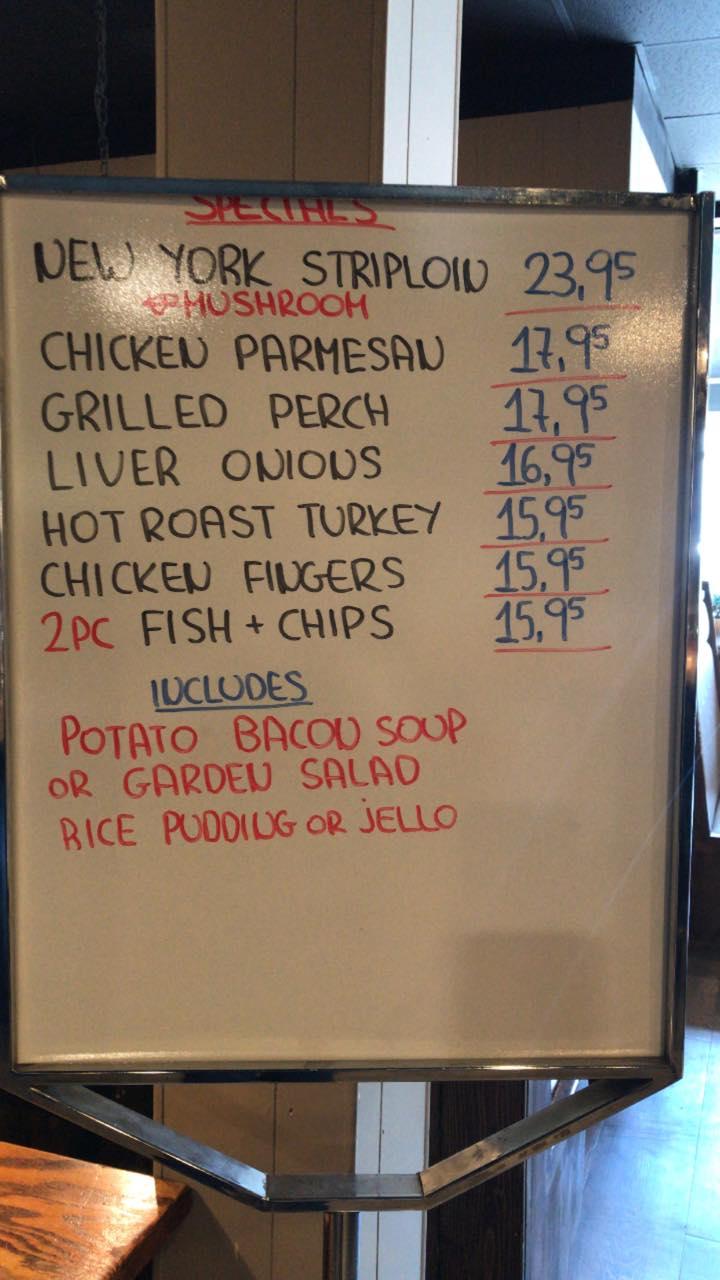 SPECIALS
NEW YORK STRIPLOIN 23,95
MUSHROOM
CHICKEN PARMESAN 17,95
GRILLED PERCH 17,95
LIVER ONIONS 16,95
HOT ROAST TURKEY 15,95
CHICKEN FINGERS 15,95
2PC FISH + CHIPS 15,95
INCLUDES
POTATO BACON SOUP
OR GARDEN SALAD
RICE PUDDING OR JELLO